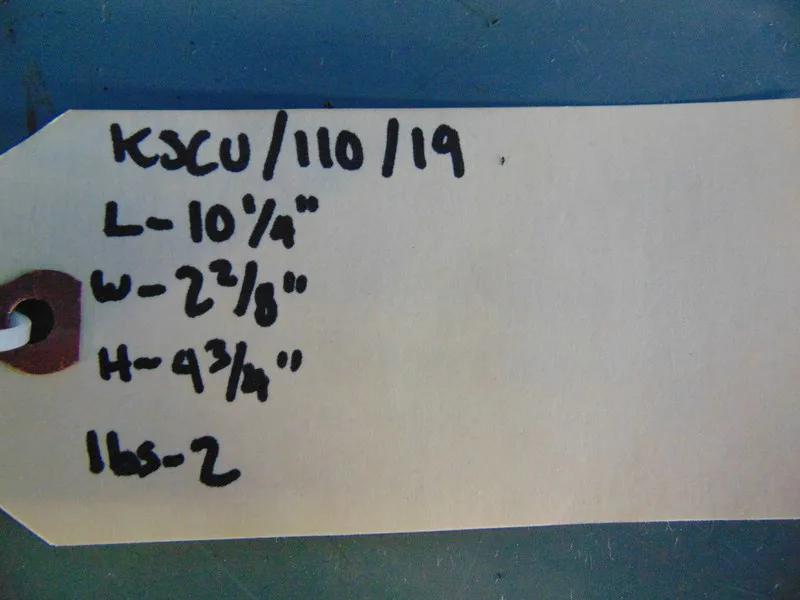 KSCU/110/19
L-10 1/4"
W-2 2/8"
H-4 3/4"
lbs-2